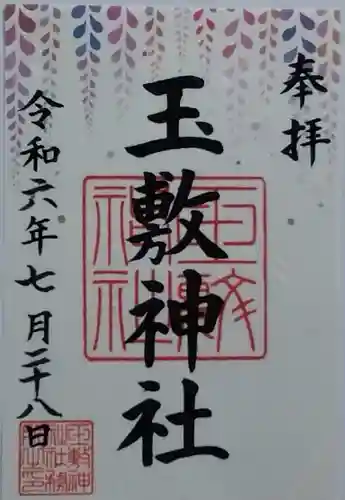 奉拝
玉敷神社
令和六年七月二十八日
玉敷神社